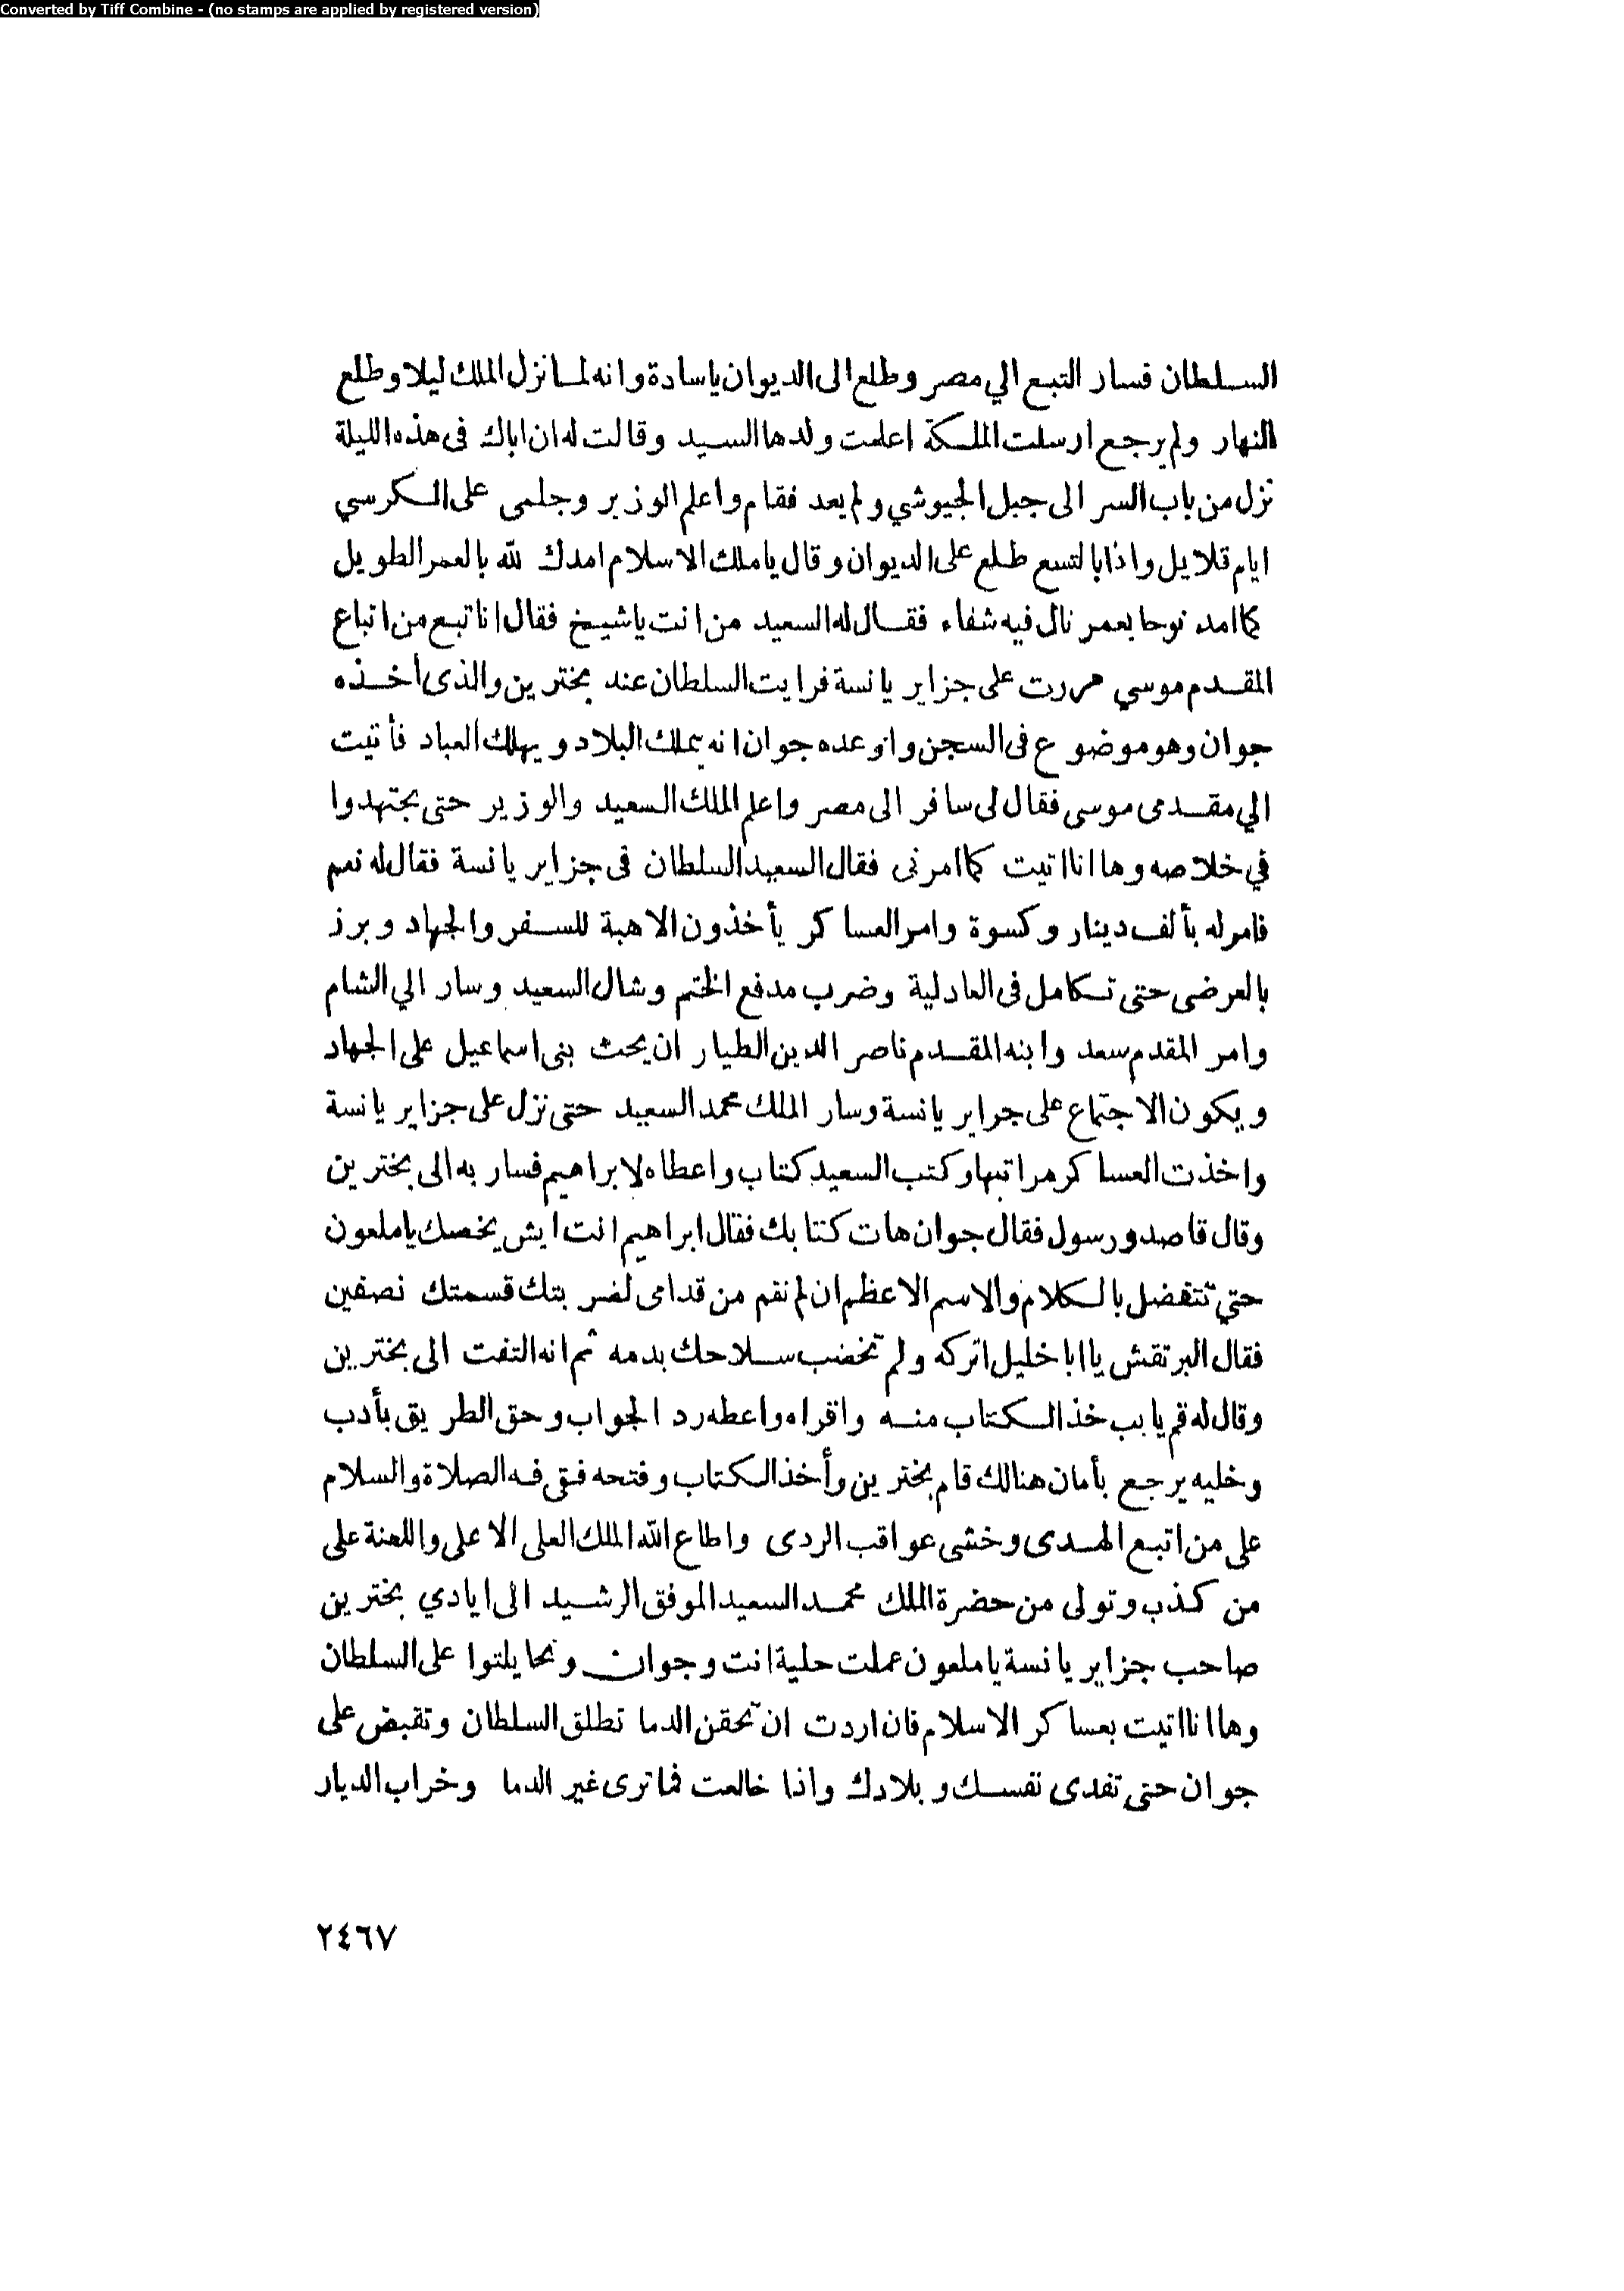 Converted by Tiff Combine - (no stamps are applied by registered version)
السلطان فسار التبع الي مصر وطلع الى الديوان ياسادة وانه لما نزل الملك ليلا وطلع
النهار ولم يرجع ارسلت الملكة اعلمت ولدها السيد وقالت له ان اباك فى هذه الليلة
نزل من باب السر الى جبل الجيوشي ولم يعد فقام واعلم الوزير وجلمى على الكرسي
ايام قلايل واذا بالتبع طلع على الديوان وقال يا ملك الاسلام امدك لله بالعمر الطويل
كما امد نوحا بعمر نال فيه شفاء فقال له السعيد من انت يا شيخ فقال انا تبع من اتباع
المقدم موسي مررت على جزاير يانسة فرايت السلطان عند بخترين والذى أخذه
جوان وهو موضوع فى السجن واوعده جوان انه يملك البلاد ويهلك العباد فأتيت
الي مقدمى موسى فقال لى سافر الى مصر واعلم الملك السعيد والوزير حتى يجتهدوا
في خلاصه وها انا اتيت كما امرنى فقال السعيد السلطان فى جزاير يانسة فقال له نعم
فامر له بألف دينار وكسوة وامر العساكر يأخذون الاهبة للسفر والجهاد وبرز
بالعرضى حتى تكامل فى العادلية وضرب مدفع الختم وشال السعيد وسار الي الشام
وامر المقدم سعد وابنه المقدم ناصر الدين الطيار ان يحث بنى اسماعيل على الجهاد
ويكون الاجتماع على جراير يانسة وسار الملك محمد السعيد حتى نزل على جزاير يانسة
واخذت العساكر مراتبها وكتب السعيد كتاب واعطاه لابراهيم فسار به الى بخترين
وقال قاصد ورسول فقال جوان هات كتابك فقال ابراهيم انت ايش يخصك يا ملعون
حتي تتفضل بالكلام والاسم الاعظم ان لم نقم من قدامى لضربتك قسمتك نصفين
فقال البرتقش يا ابا خليل اتركه ولم تخضب سلاحك بدمه ثم انه التفت الى بخترين
وقال له قم يا بب خذ الكتاب منه واقراه واعطه رد الجواب وحق الطريق بأدب
وخليه يرجع بأمان هنالك قام بخترين وأخذ الكتاب وفتحه فتى فه الصلاة والسلام
على من اتبع الهدى وخشى عواقب الردى واطاع الله الملك العلى الاعلى واللعنة على
من كذب وتولى من حضرة الملك محمد السعيد الموفق الرشيد الى ايادي بخترين
صاحب جزاير يانسة يا ملعون عملت حلية انت وجوان ونحايلتوا على السلطان
وها انا اتيت بعساكر الاسلام فان اردت ان تحقن الدما تطلق السلطان وتقبض على
جوان حتى تفدى نفسك وبلادك واذا خالعت فما ترى غير الدما وخراب الديار
٢٤٦٧